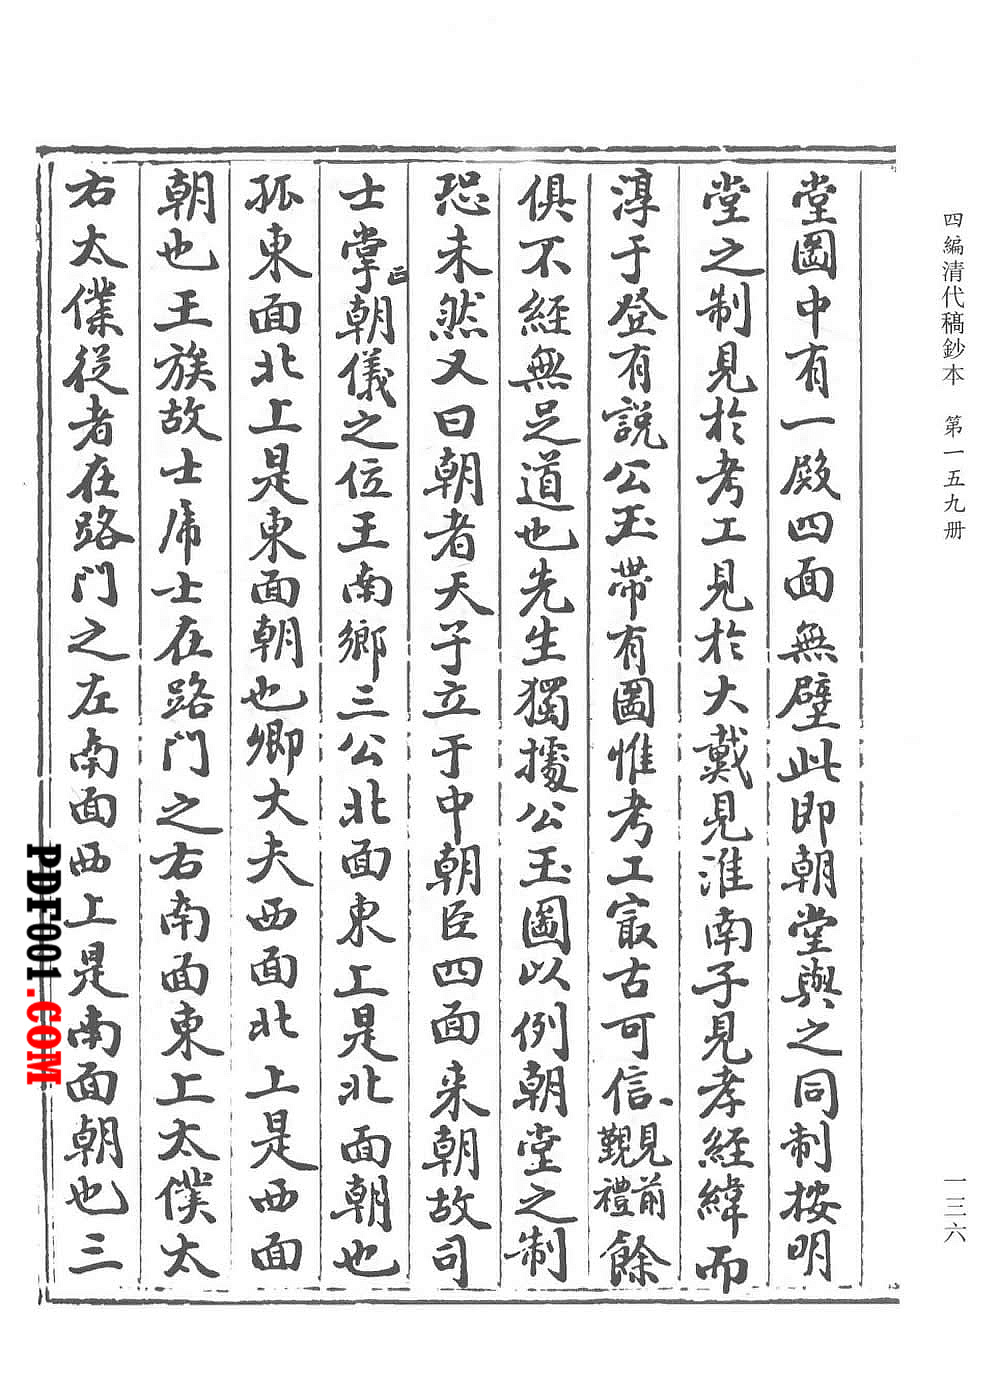 四編清代稿鈔本　第一五九册
一三六
堂圖中有一殿四面無壁此即朝堂與之同制按明
堂之制見於考工見於大戴見淮南子見孝經緯而
淳于登有説公玉帶有圖惟考工㝡古可信見前覲禮餘
俱不經無足道也先生獨據公玉圖以例朝堂之制
恐未然又曰朝者天子立于中朝臣四面来朝故司
士掌正朝儀之位王南鄉三公北面東上是北面朝也
孤東面北上是東面朝也卿大夫西面北上是西面
朝也王族故士虎士在路門之右南面東上太僕太
右太僕從者在路門之左南面西上是南面朝也三
PDF001.COM